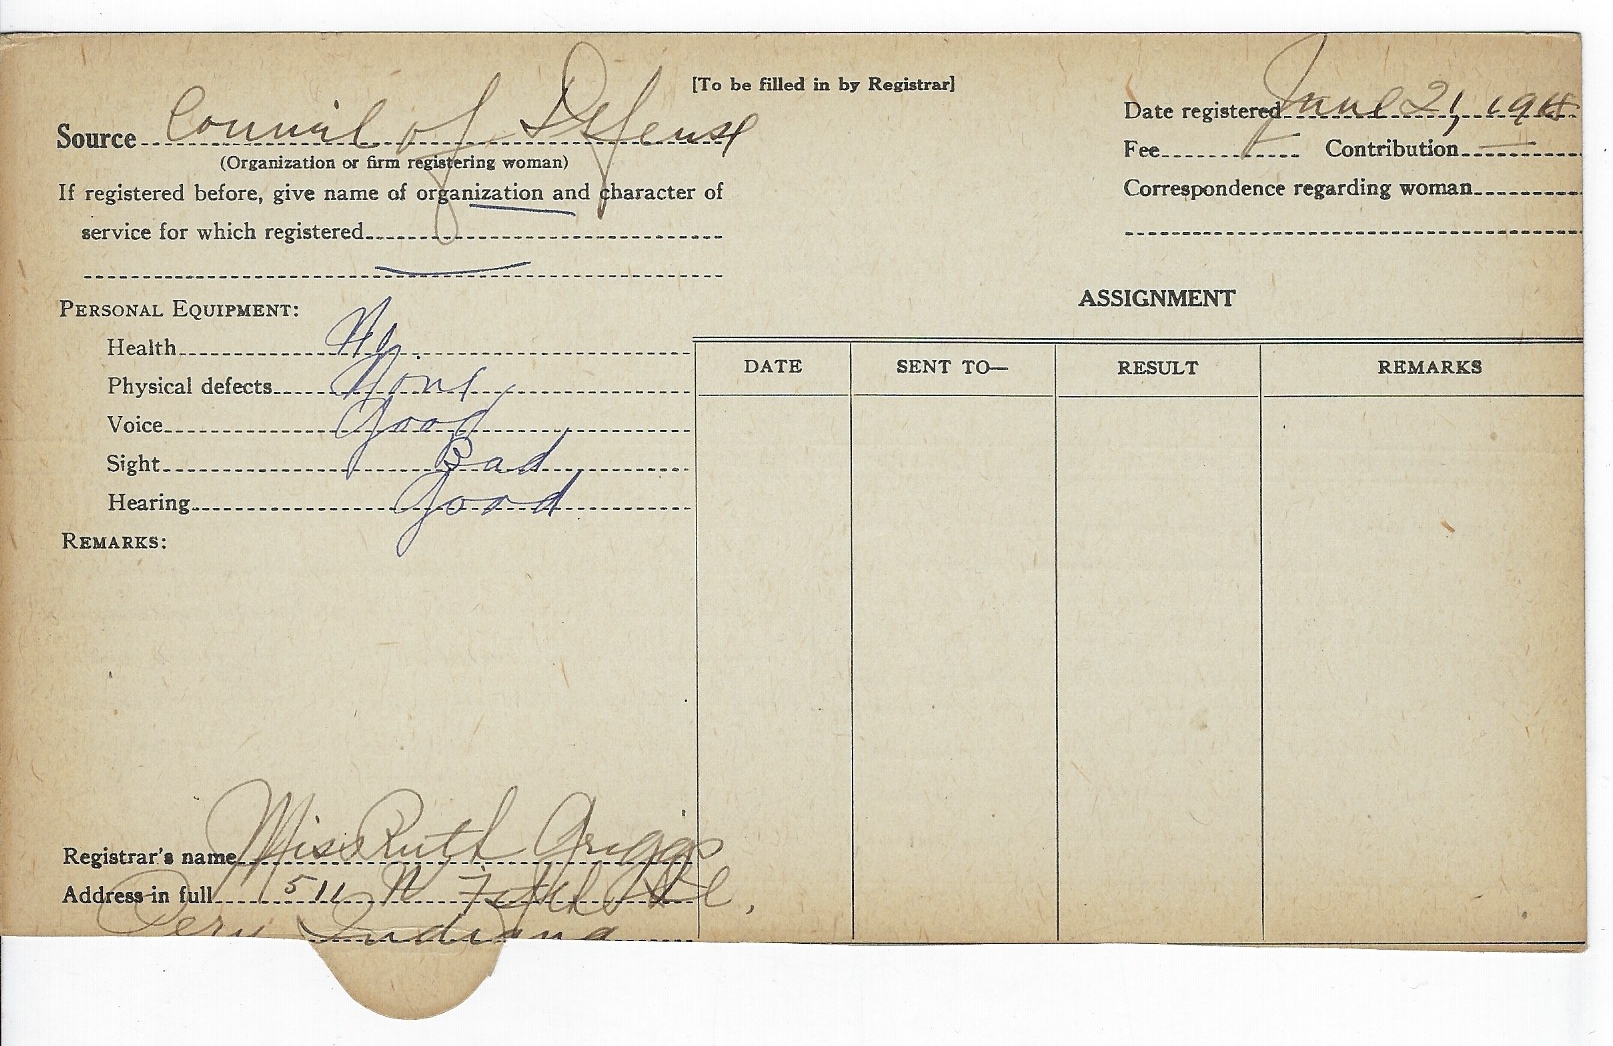 [To be filled in by Registrar]
Source Council of Defense
(Organization or firm registering woman)
If registered before, give name of organization and character of
service for which registered
Date registered June 21, 1918
Fee — Contribution —
Correspondence regarding woman
PERSONAL EQUIPMENT:
Health
Physical defects None
Voice Good
Sight Bad
Hearing Good
REMARKS:
ASSIGNMENT
DATE SENT TO— RESULT REMARKS
Registrar's name Miss Ruth Griggs
Address in full 511 N Fifth St.,
Peru Indiana